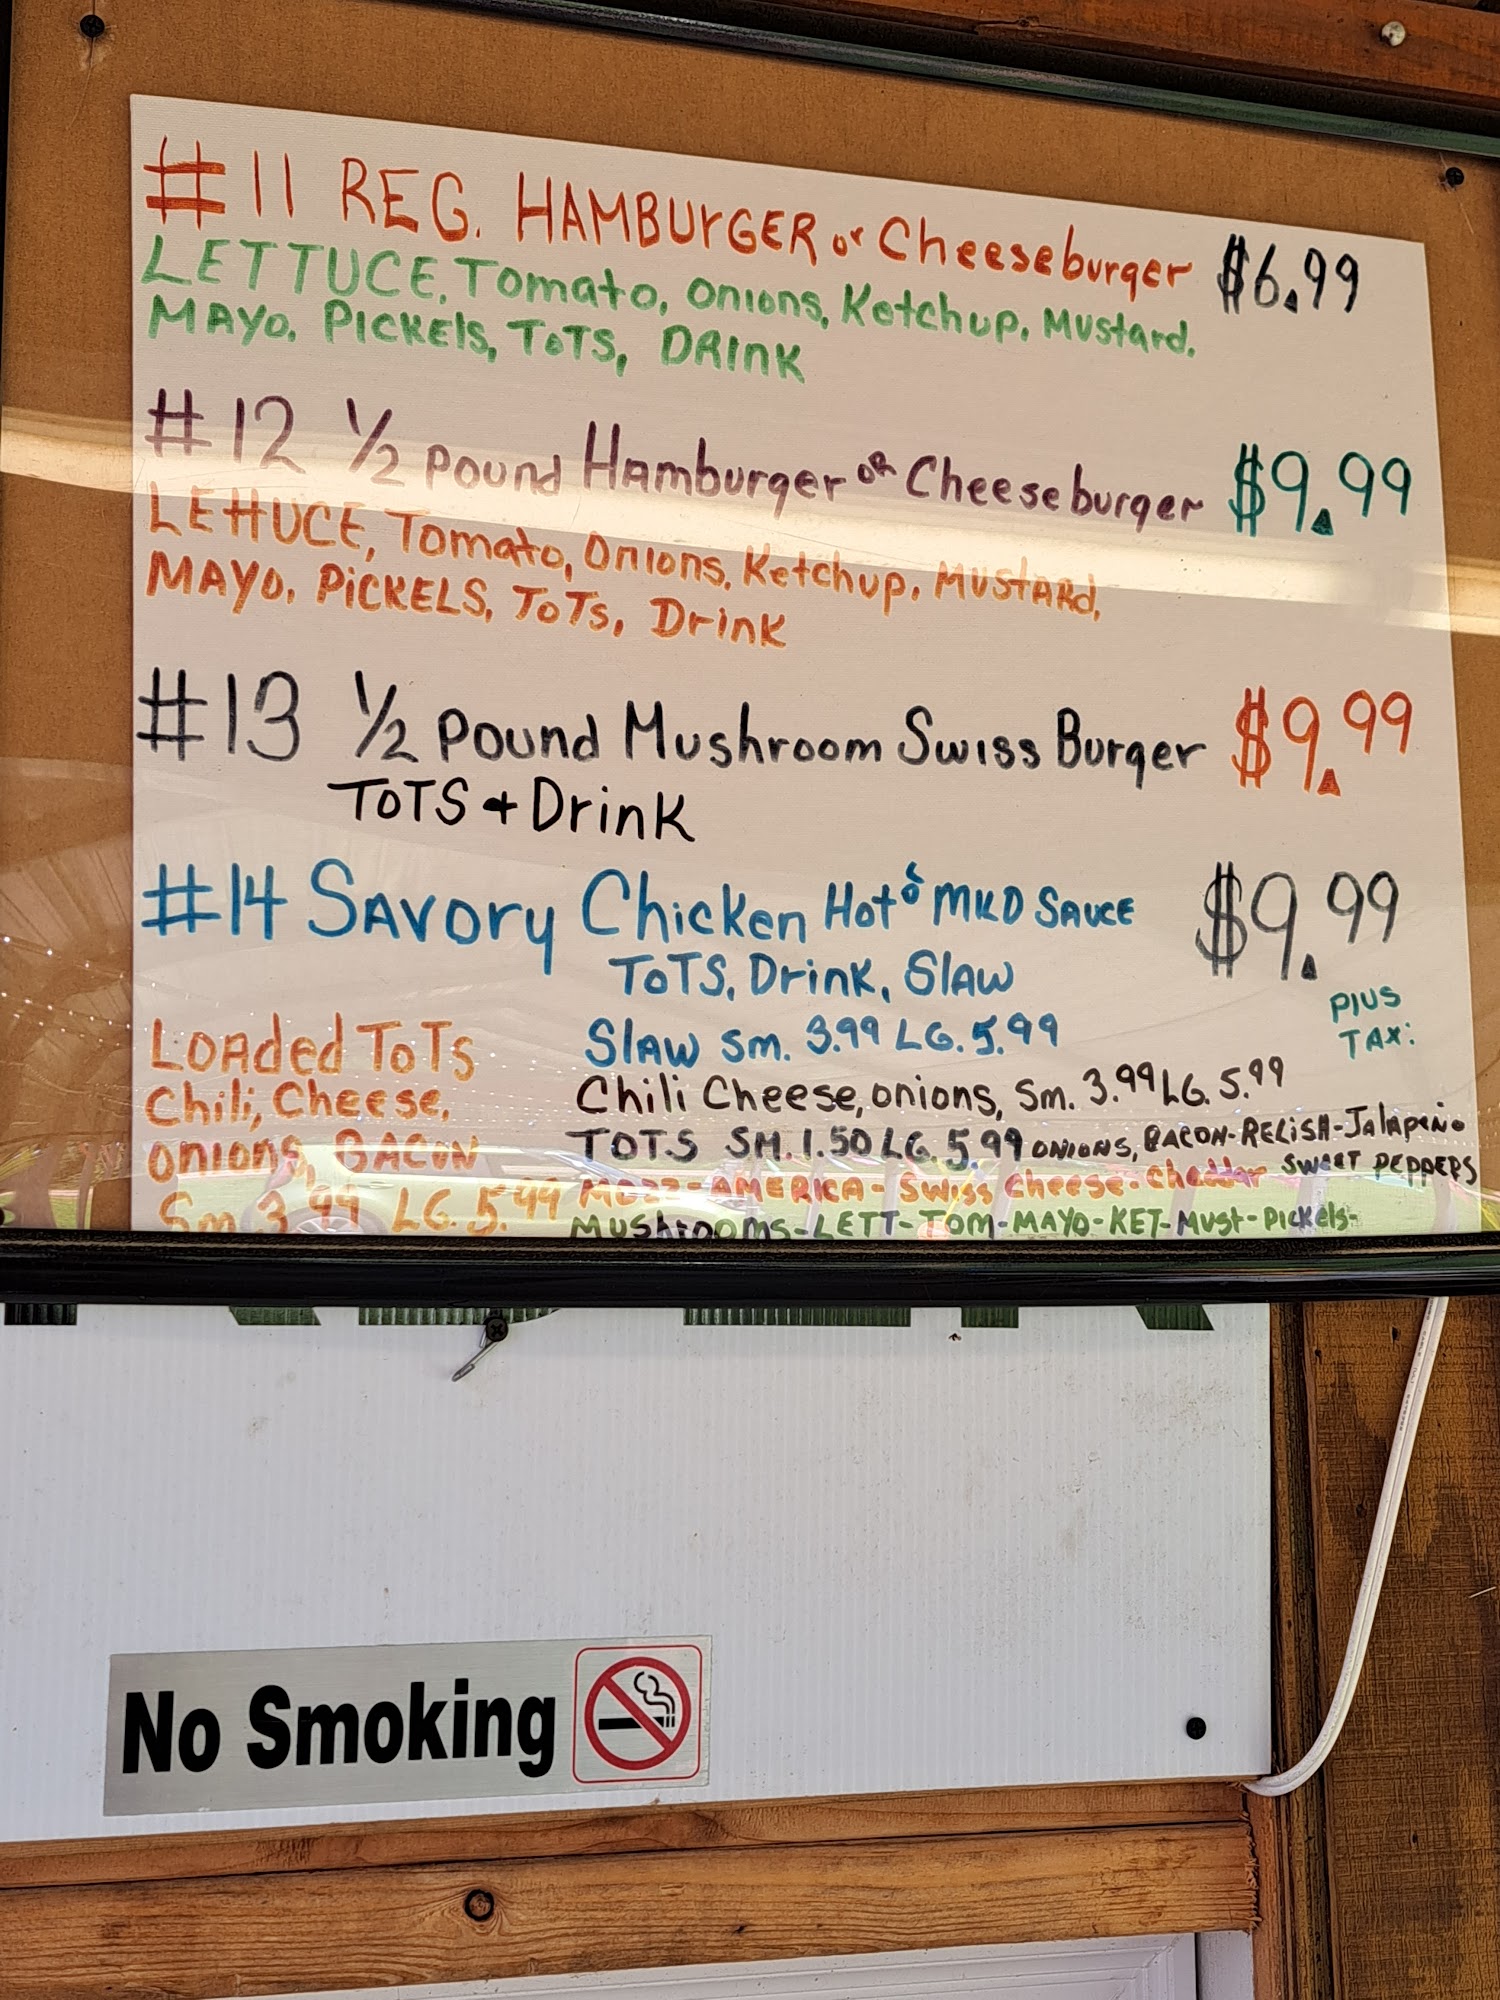 #11 REG. HAMBURGER or Cheeseburger $6.99
LETTUCE, Tomato, Onions, Ketchup, Mustard,
MAYO. PICKEls, ToTS, DRINK
#12 1/2 pound Hamburger OR Cheeseburger $9.99
LETTUCE, Tomato, Onions, Ketchup, MUSTARd,
MAYO, PiCKELS, ToTs, Drink
#13 1/2 pound Mushroom Swiss Burger $9.99
TOTS + Drink
#14 SAVORY Chicken Hot & MILD SAUCE $9.99
ToTS, Drink, SlAW
PlUS
TAX:
Loaded ToTs
Chili, Cheese,
onions, BACON
Sm 3.99 LG. 5.99
SlAW Sm. 3.99 LG. 5.99
Chili Cheese, onions, Sm. 3.99 LG. 5.99
TOTS SM. 1.50 LG. 5.99 ONIONS, BACON-RELISH-JalapeNo
SWEET PEPPERS
MOZZ-AMERICA-Swiss Cheese-Cheddar
Mushrooms-LETT-TOM-MAYO-KET-Must-Pickels-
No Smoking